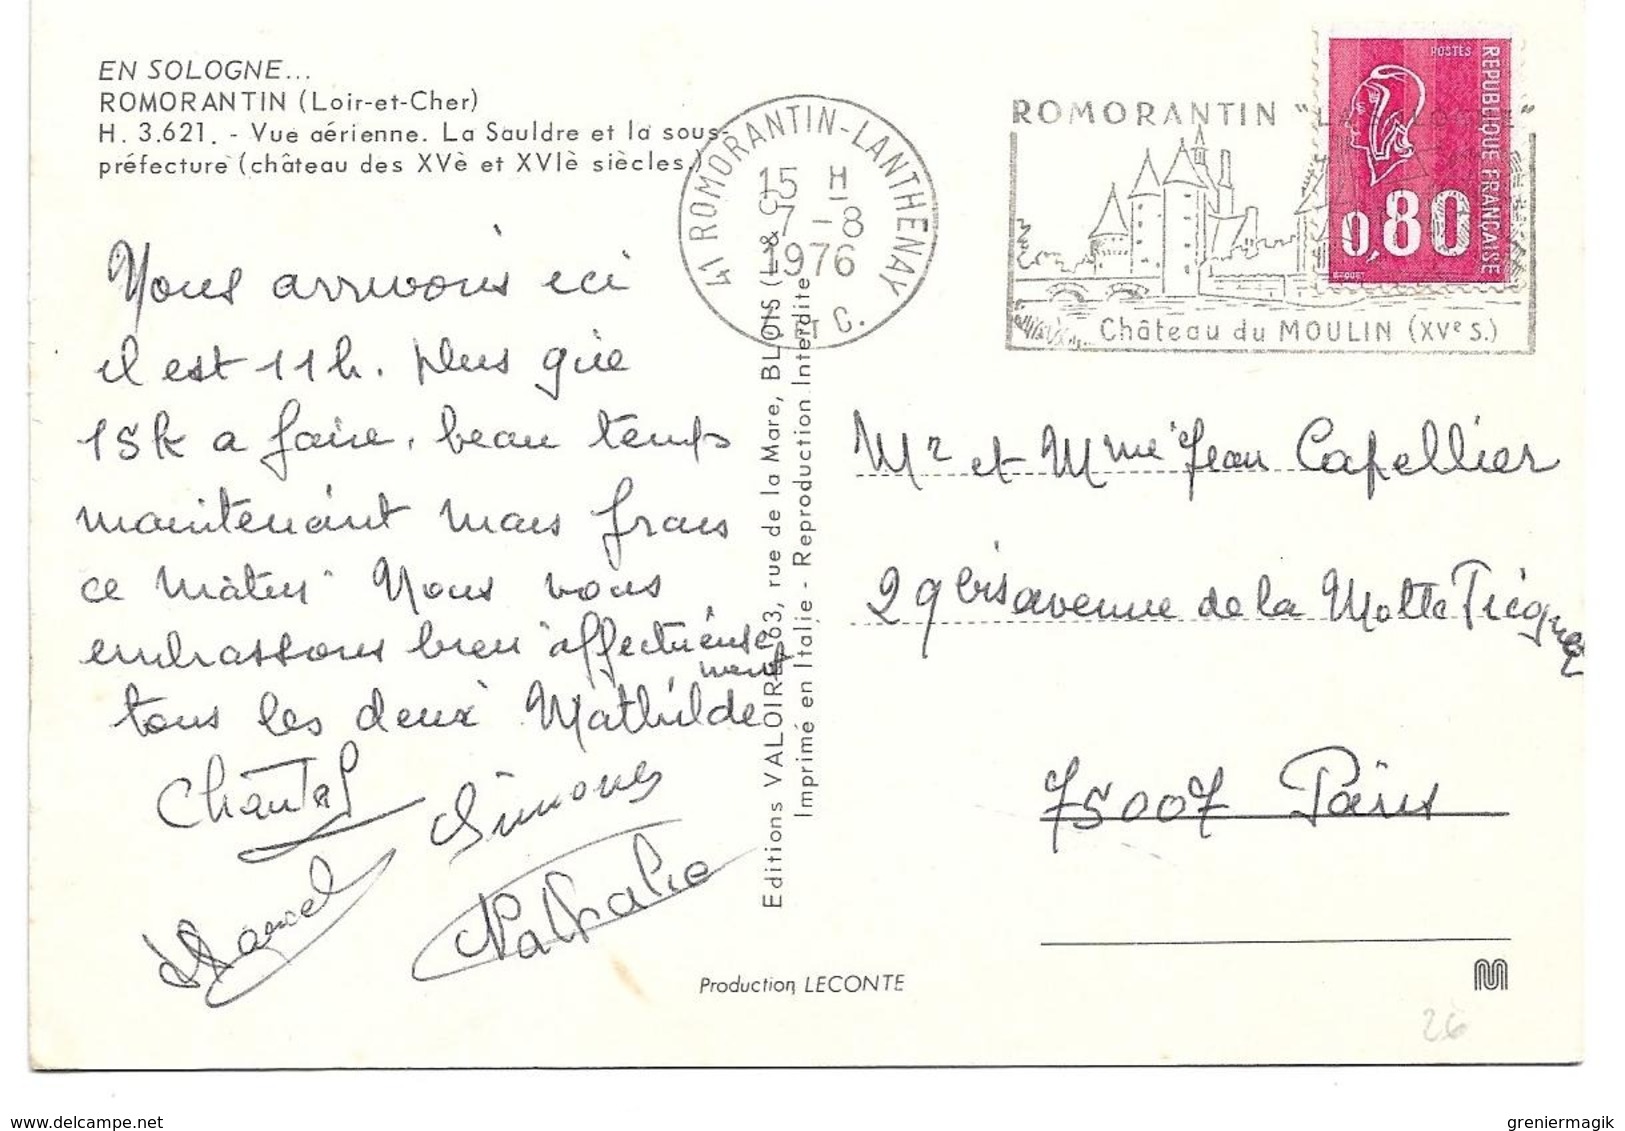 EN SOLOGNE...
ROMORANTIN (Loir-et-Cher)
H. 3.621. - Vue aérienne. La Sauldre et la sous-
préfecture (château des XVè et XVIè siècles.)
41 ROMORANTIN-LANTHENAY
15 H
7-8
1976
ET C.
ROMORANTIN "LA
Château du MOULIN (XVe S.)
POSTES
REPUBLIQUE FRANÇAISE
0,80
BEQUET
Nous arrivons ici
il est 11h. plus que
15k a faire. beau temps
maintenant mais frais
ce matin Nous vous
embrassons bien affectueuse
ment
tous les deux Mathilde
Chantal
Simones
Marcel
Nathalie
Editions VALOIRE, 63, rue de la Mare, BLOIS (L. & C.)
Imprimé en Italie - Reproduction Interdite
Mr et Mme Jean Capellier
29 bis avenue de la Motte Picquet
75007 Paris
Production LECONTE
26
www.delcampe.net
greniermagik